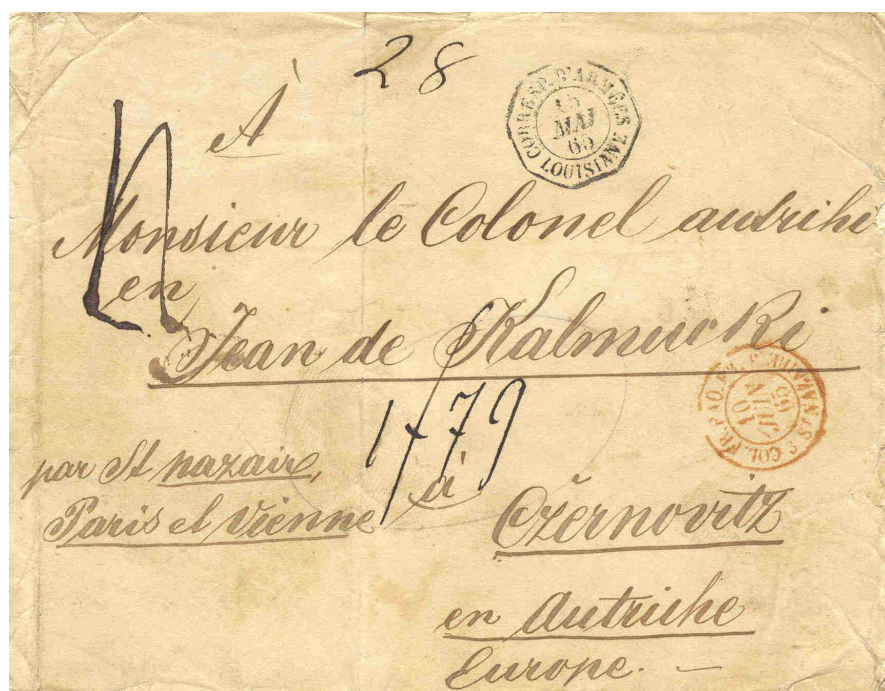 28
CORRESP. D'ARMÉES
15
MAI
65
LOUISIANE
À
Monsieur le Colonel autrihi
en
Jean de Kalmucki
COL. FR.
10
JUIN
65
ST NAZAIRE
179
par St nazaire,
à
Paris et Vienne
Czernovitz
en Autriche
Europe. —